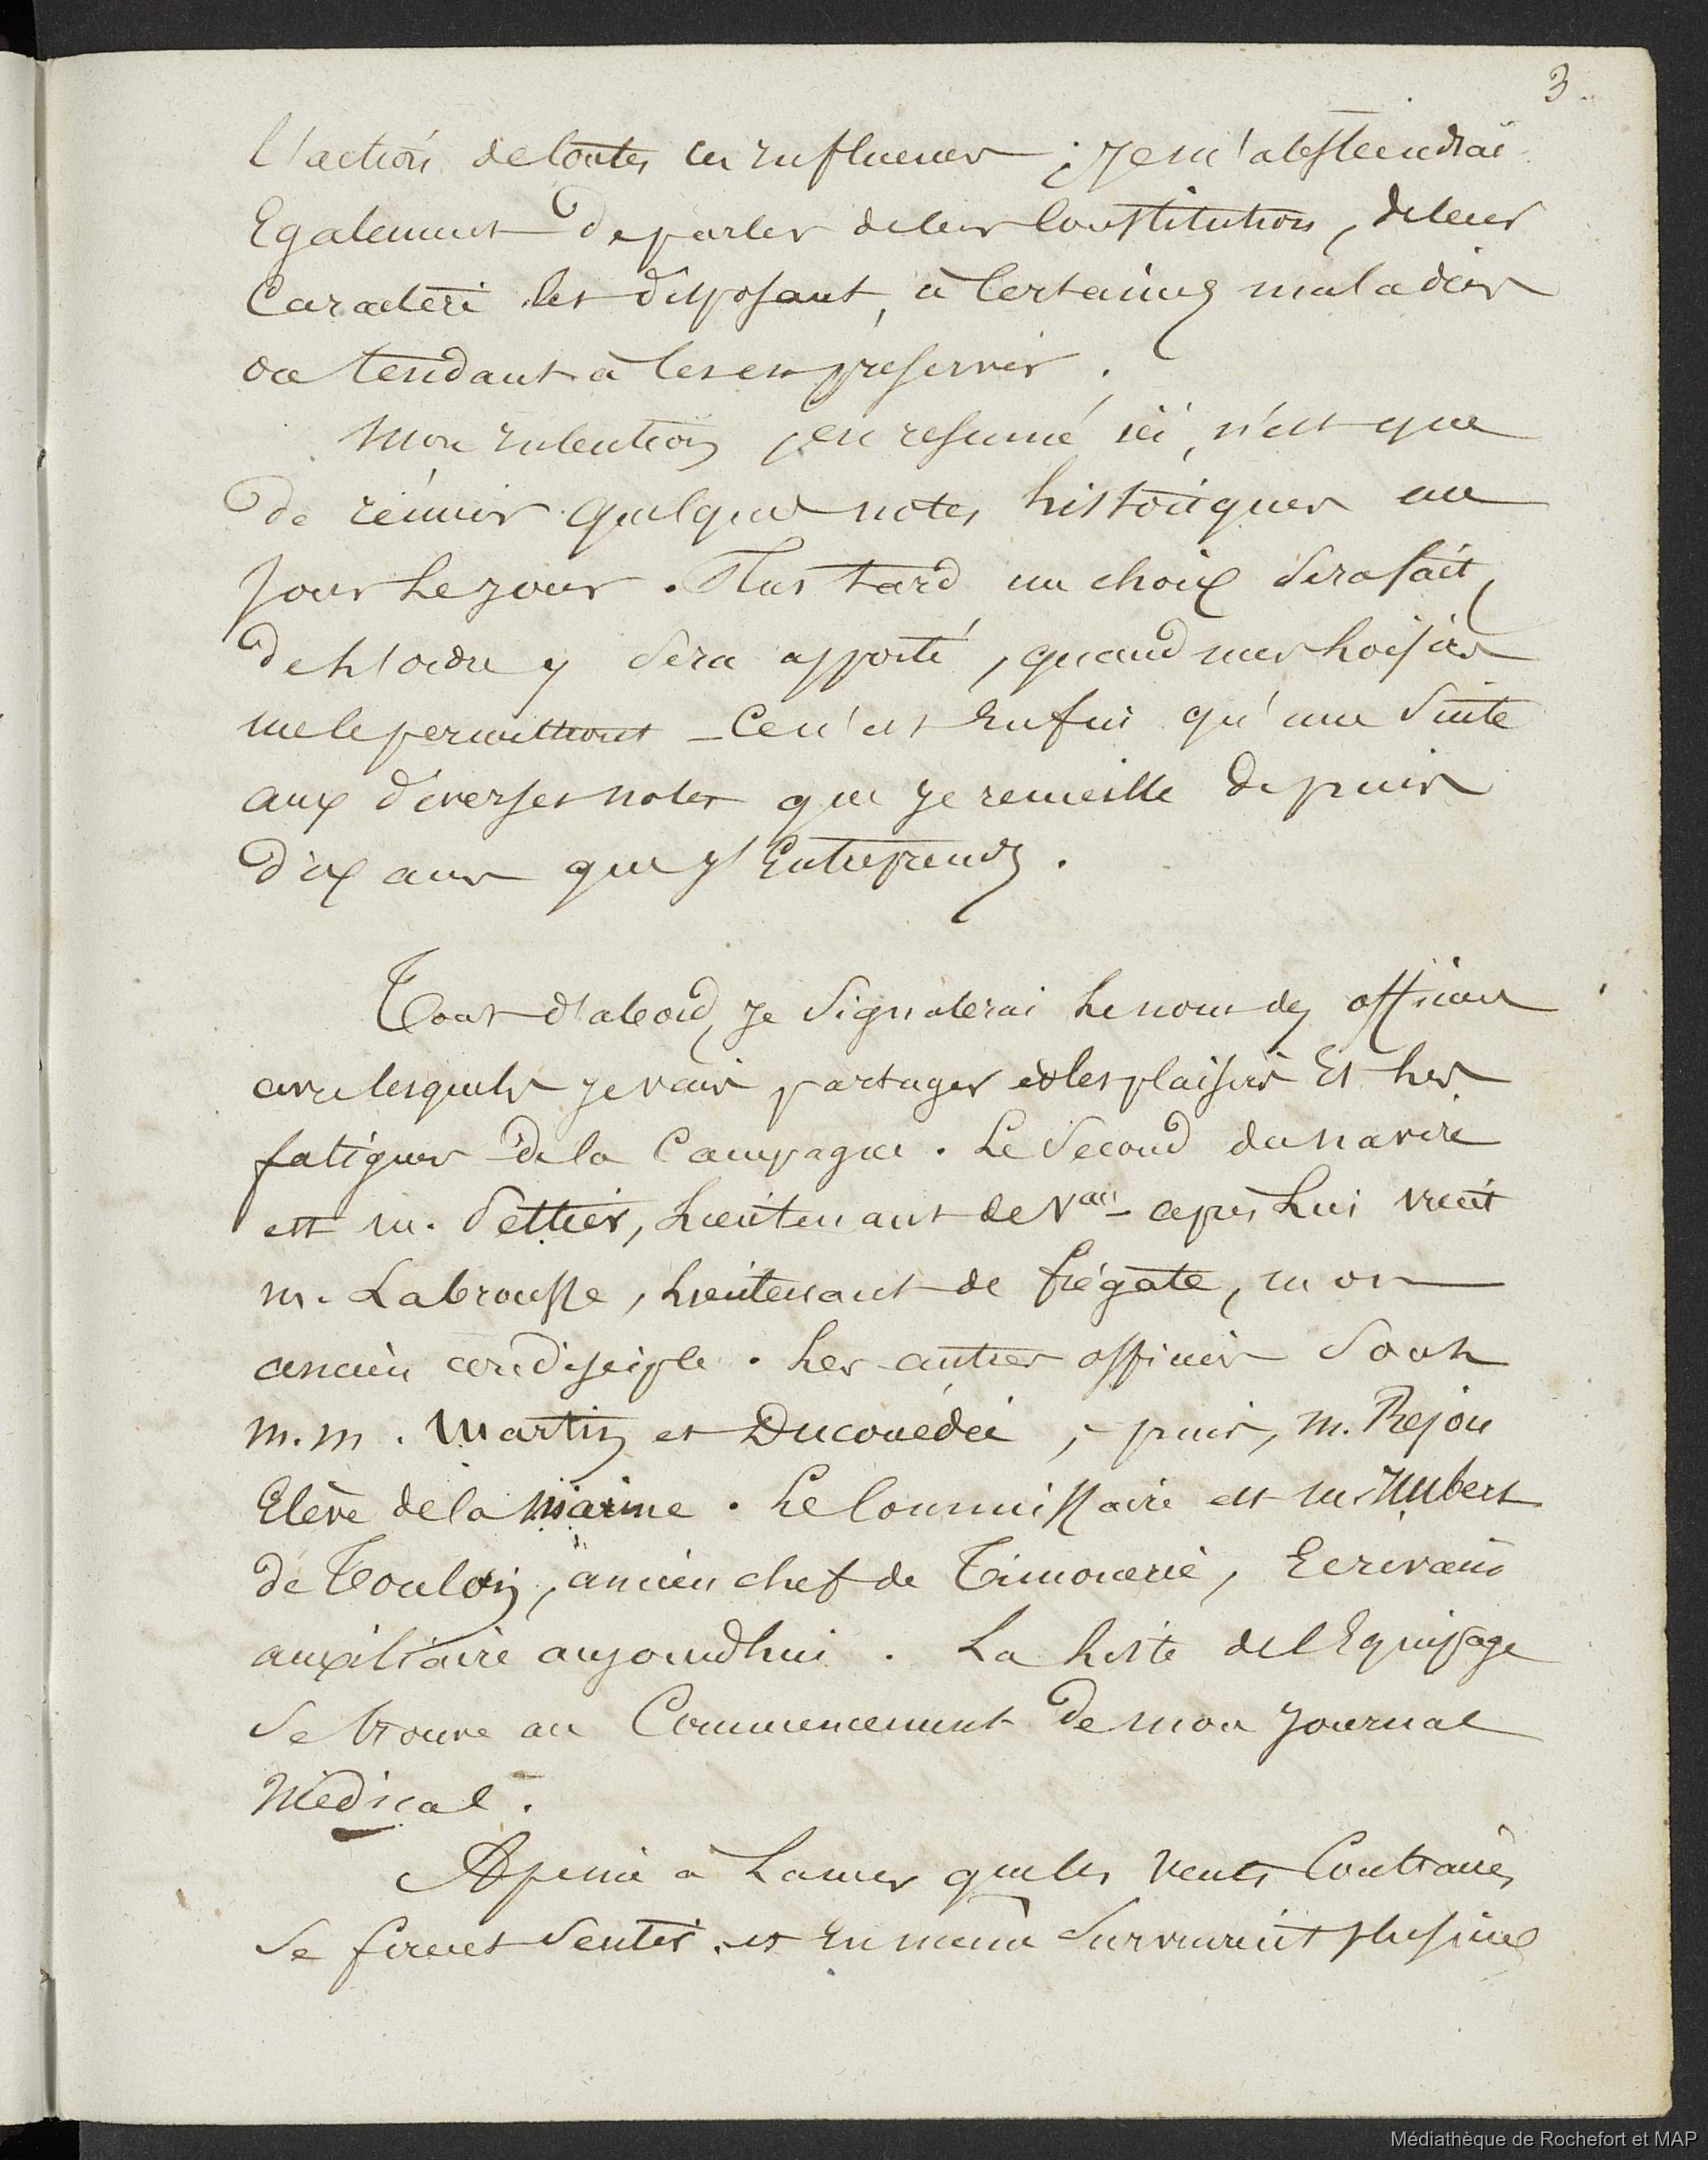 3.
l'action de toutes ces influences ; je m'abstiendrai
Egalement de parler de leur Constitution, de leur
Caractère les disposant, à Certaines maladies
ou tendant à les en préserver.
Mon intention, en resumé ici, n'est que
de réunir quelques notes historiques au
jour le jour. Plus tard un choix sera fait,
de l'ordre y sera apporté, quand mes loisirs
me le permettront _ Ce n'est Enfin qu'une Suite
aux diverses notes que je recueille depuis
dix ans que j'Entreprends.
Tout d'abord, je Signalerai le nom des officiers
avec lesquels je vais partager et les plaisirs Et les
fatigues de la Campagne. Le Second du navire
est m. Settier, Lieutenant de Vau _ après Lui vient
m. Labrousse, Lieutenant de frégate, mon
ancien condisciple. Les autres officiers Sont
m.m. Martin et Ducouëdei, puis, m. Rejou
Elève de la Marine. Le Commissaire est m. Hubert
de Toulon, ancien chef de Timonerie, Ecrivain
auxiliaire aujourdhui. La Liste de l'Equipage
Se trouve au Commencement de mon Journal
Médical.
A peine à La mer que les vents Contraires,
Se firent Sentir, et En même Survinrent plusieurs
Médiathèque de Rochefort et MAP